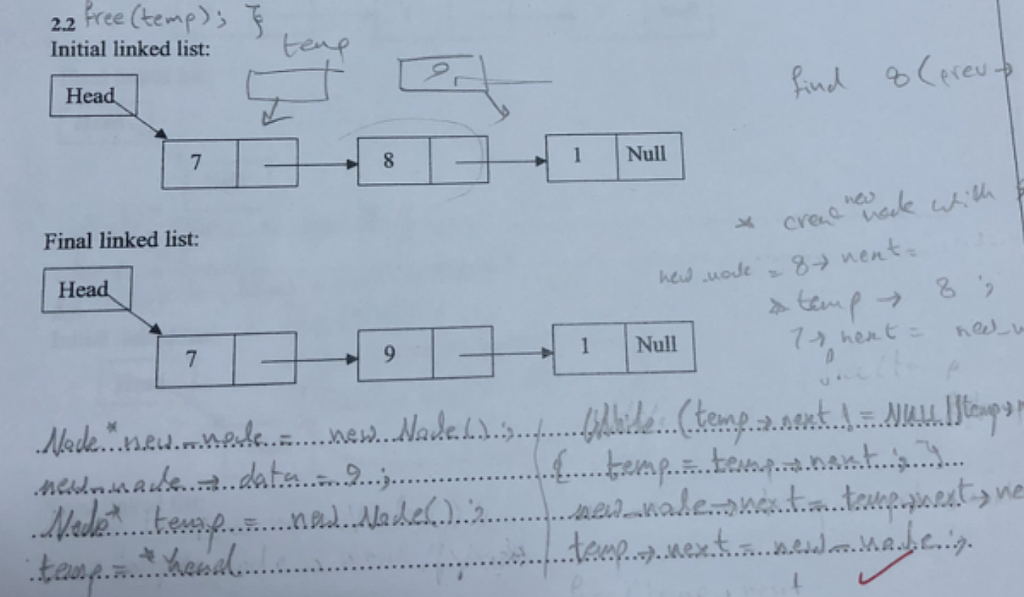 2.2 free(temp); }
Initial linked list:
temp
Head
9
find 8 (prev→
7
8
1 Null
Final linked list:
* creat new node with
new node = 8→ next=
Head
* temp → 8 ;
7→ next =
7
9
1 Null
Node *new_node = new Node();
new_node → data = 9;
Node* temp = new Node();
temp = *head
While (temp→next != NULL||temp→
{ temp = temp→next; }
new_node→next = temp→next→ne
temp→next = new_node;